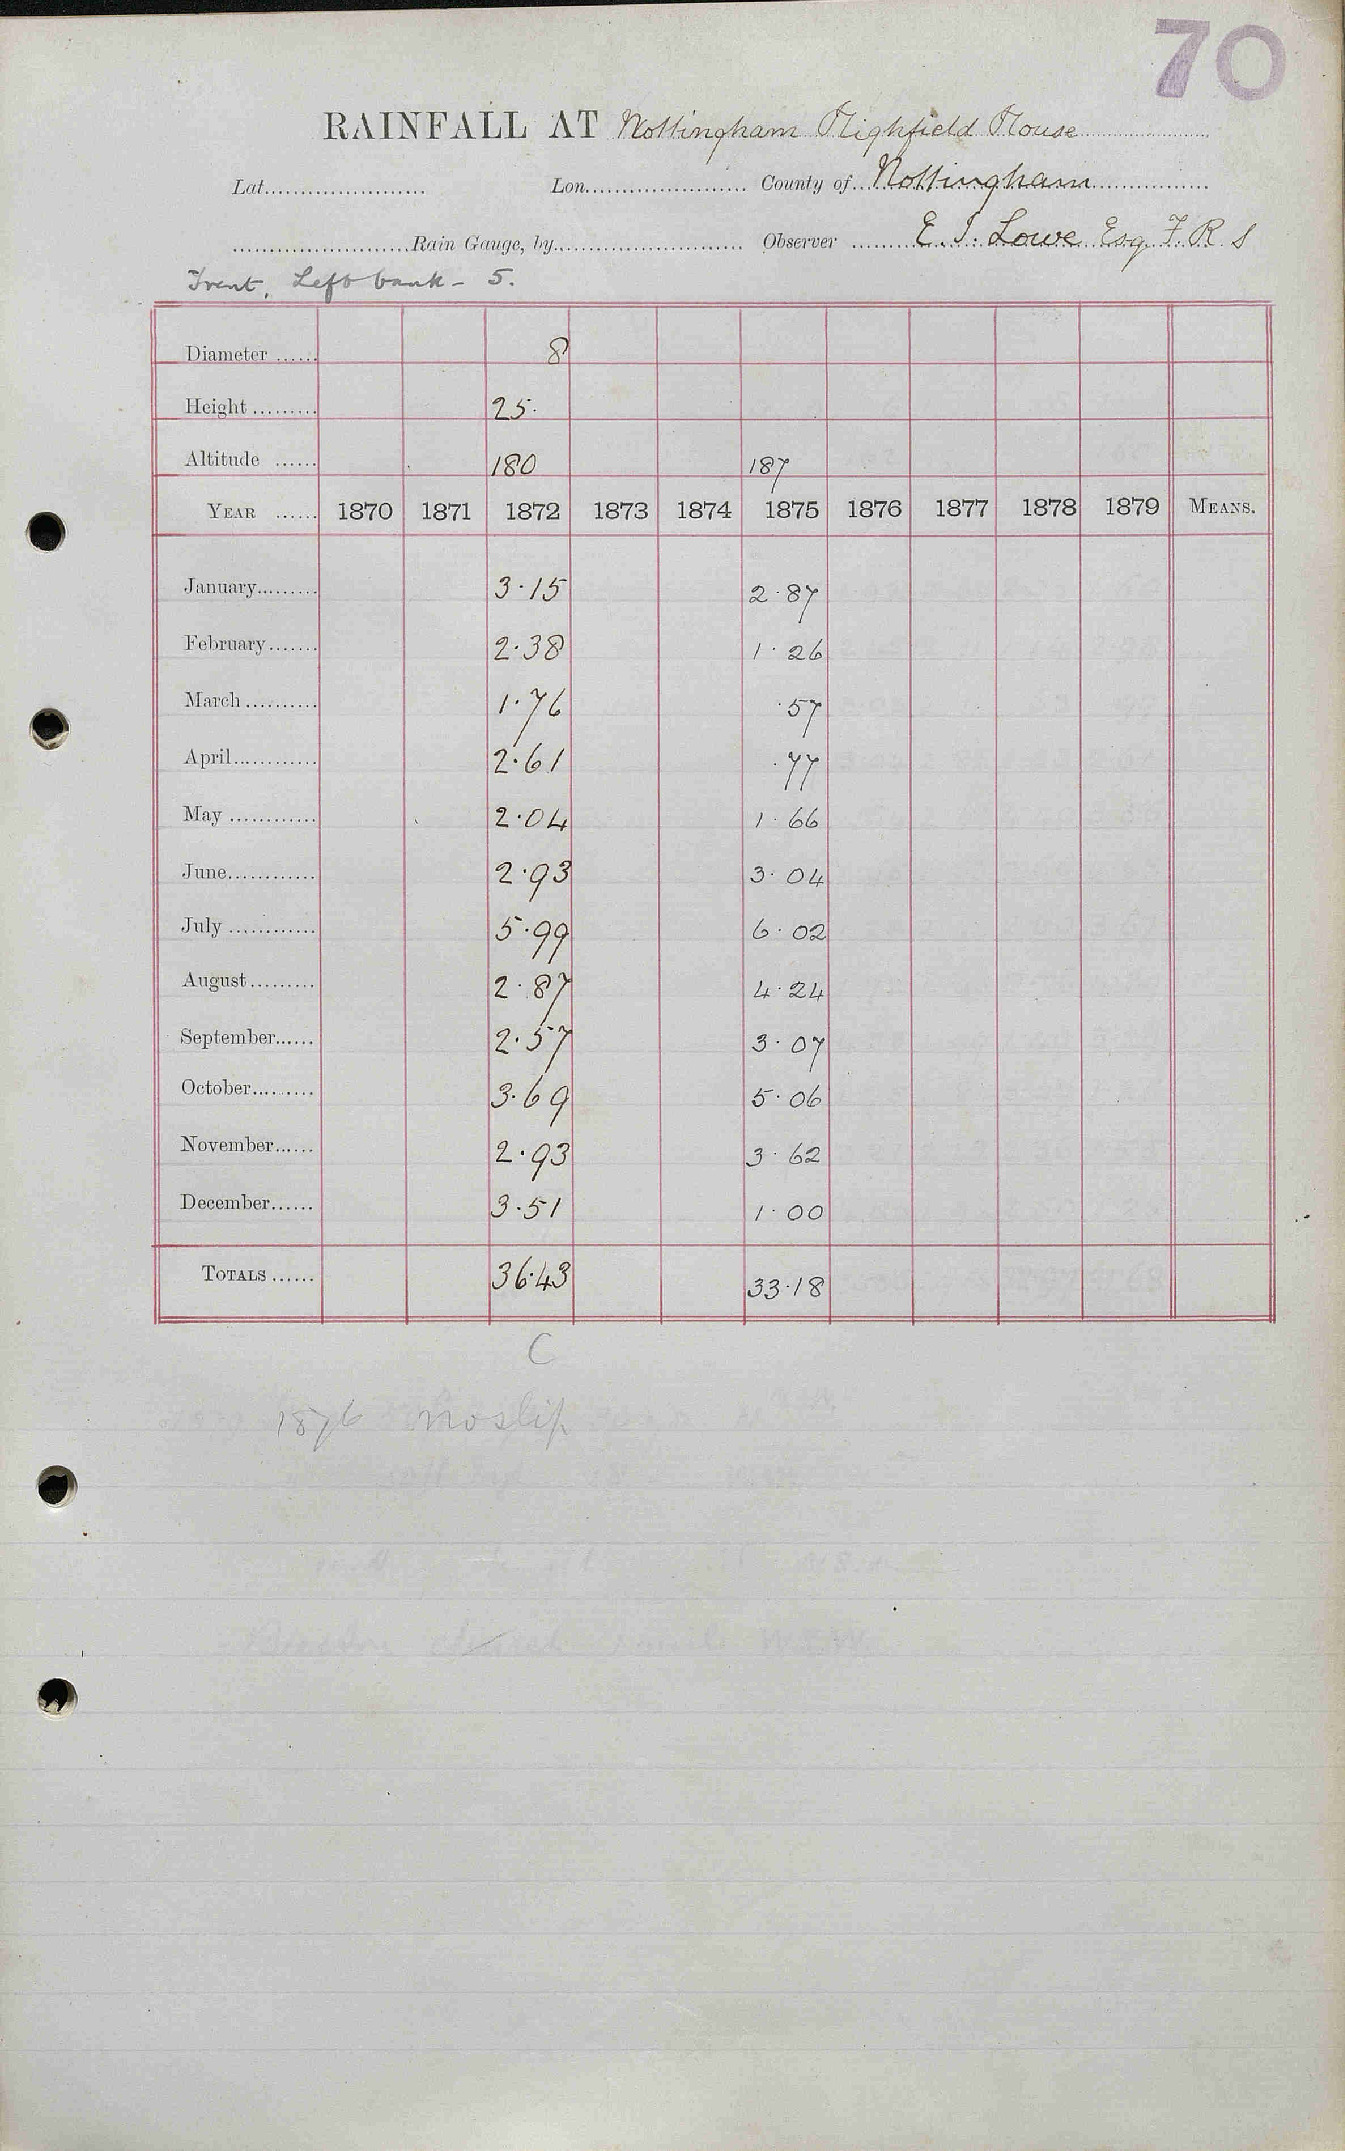 70
RAINFALL AT Nottingham Highfield House
Lat. Lon. County of Nottingham
Rain Gauge, by Observer E. J. Lowe Esq F R S
Trent, Left bank - 5.
Diameter 8
Height 25.
Altitude 180 187
YEAR 1870 1871 1872 1873 1874 1875 1876 1877 1878 1879 MEANS.
January 3.15 2.87
February 2.38 1.26
March 1.76 .57
April 2.61 .77
May 2.04 1.66
June 2.93 3.04
July 5.99 6.02
August 2.87 4.24
September 2.57 3.07
October 3.69 5.06
November 2.93 3.62
December 3.51 1.00
TOTALS 36.43 33.18
C
1876 no slip